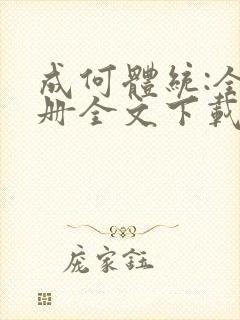 成何體統:全
册全文下載
庞家鈺